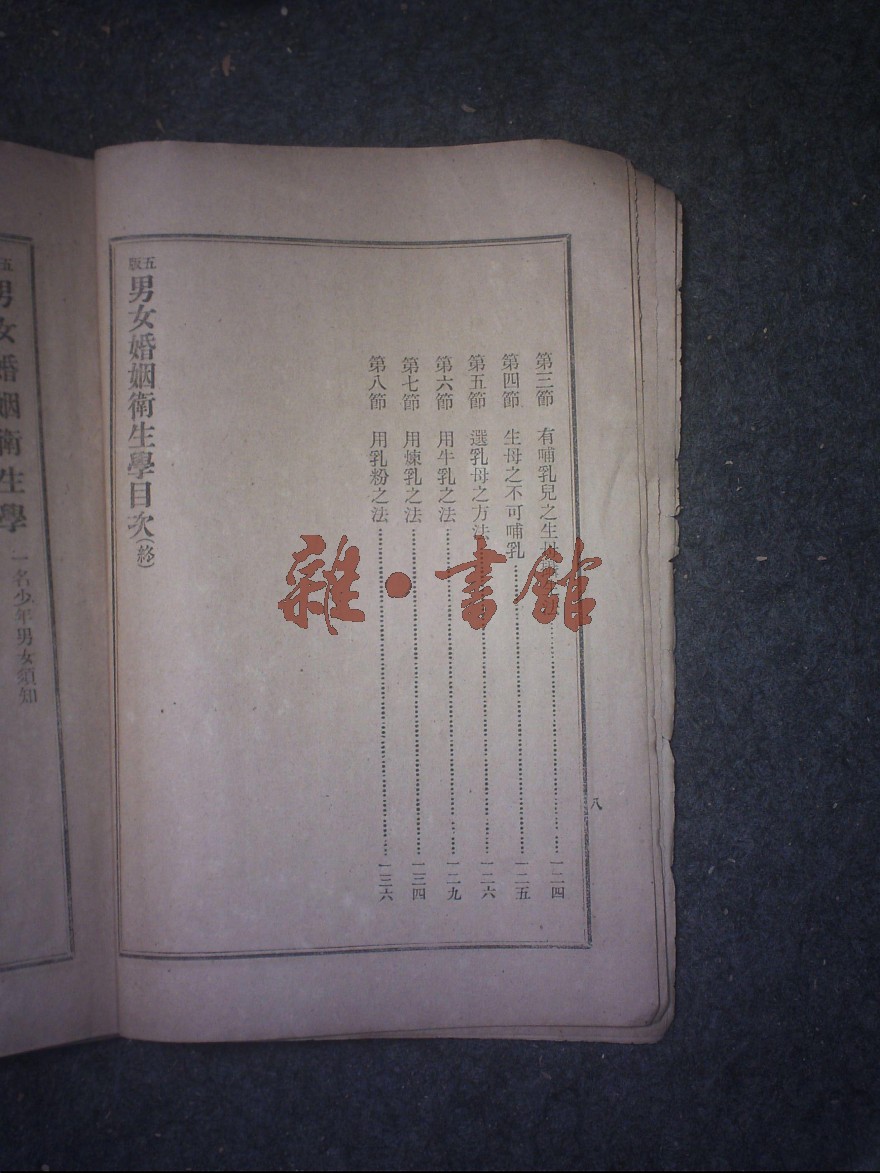 第三節 有哺乳兒之生母 一二四
第四節 生母之不可哺乳 一二五
第五節 選乳母之方法 一二六
第六節 用牛乳之法 一二九
第七節 用煉乳之法 一三四
第八節 用乳粉之法 一三六
五版 男女婚姻衛生學目次(終)
八
五 男女婚姻衛生學 一名少年男女須知
雜·書館